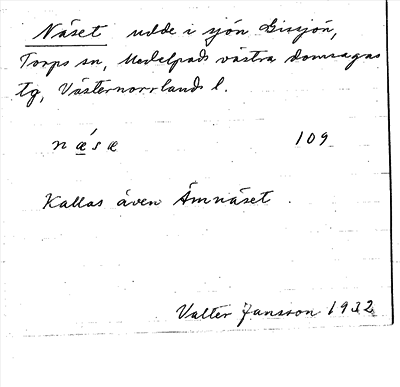 Näset udde i sjön Gissjön,
Torps sn, Medelpads västra domsagas
tg, Västernorrlands l.
næ´sæ 109
Kallas även Åmnäset.
Valter Jansson 1932